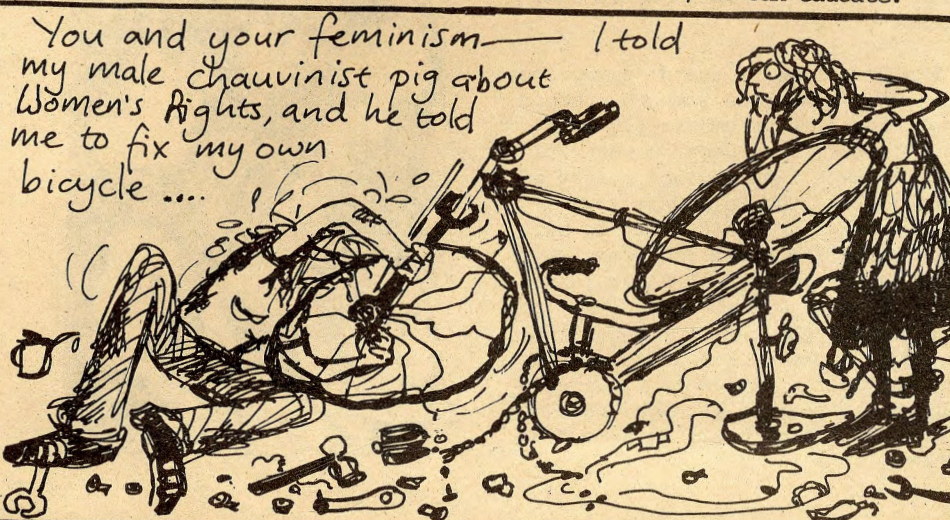 You and your feminism—— I told
my male chauvinist pig about
Women's Rights, and he told
me to fix my own
bicycle ....